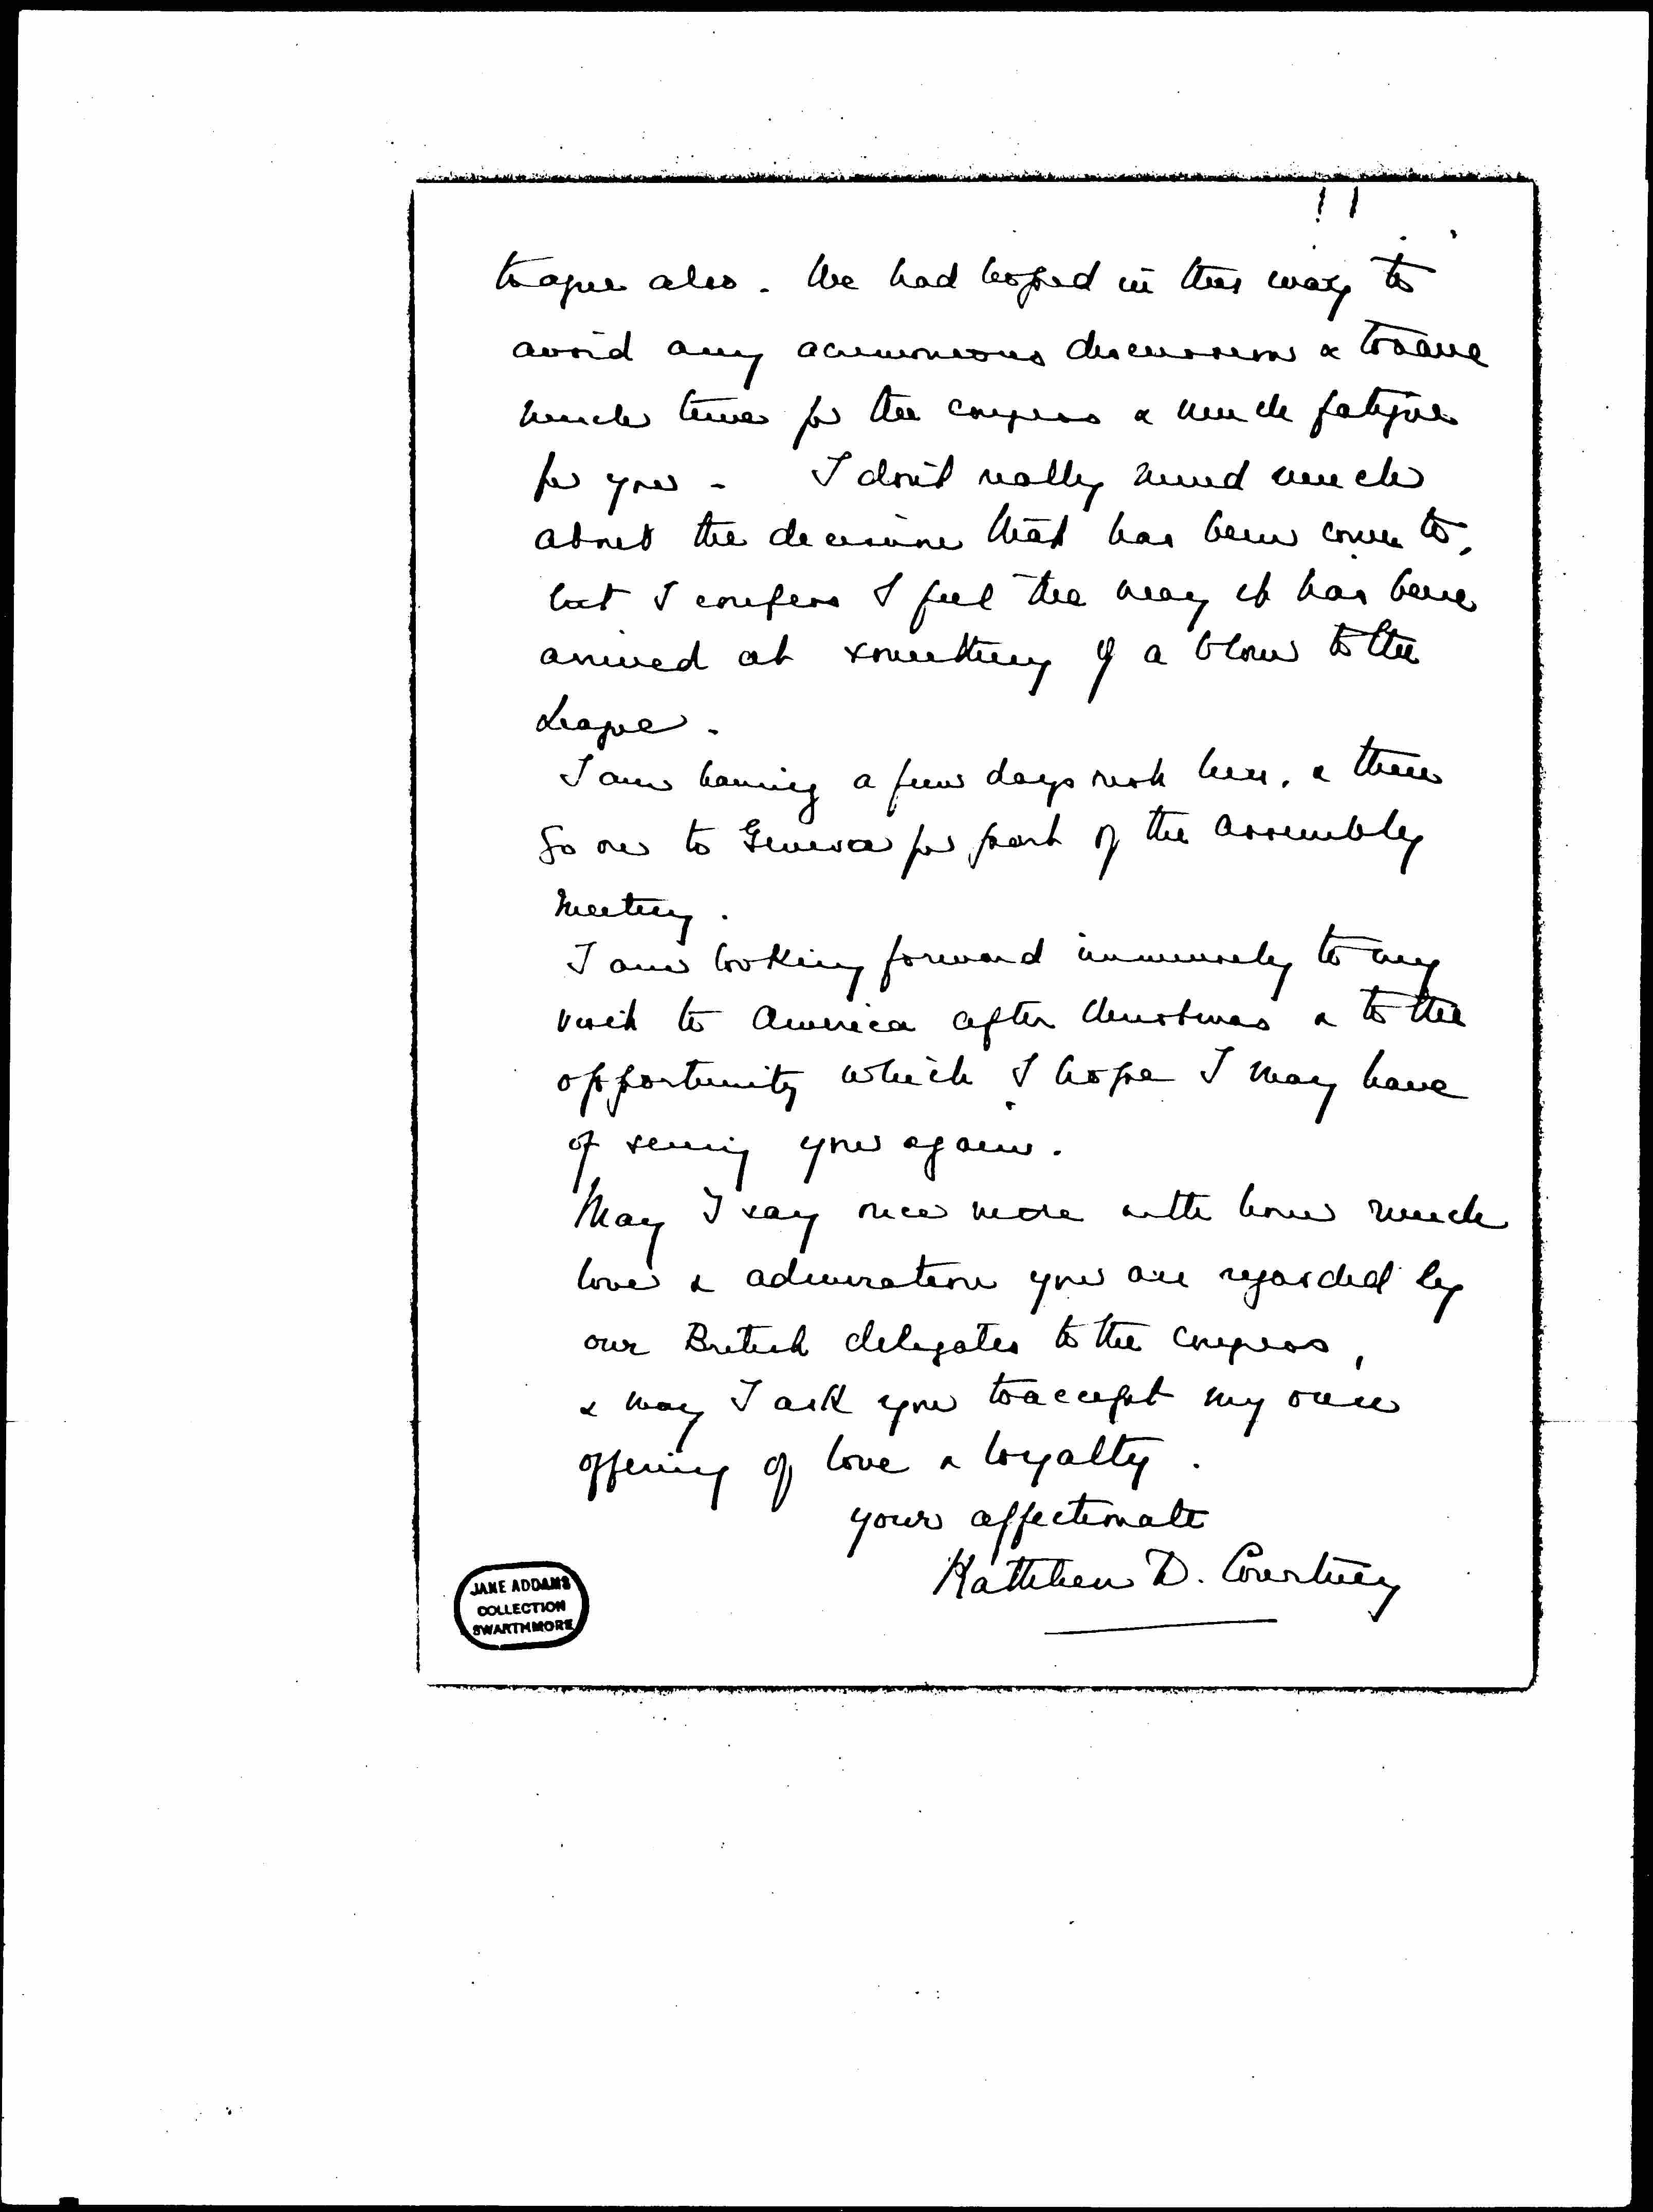 to agree also. We had hoped in this way to
avoid any acrimonious discussion & to save
much time for the congress & much fatigue
for you - I don't really mind much
about the decision that has been come to,
but I confess I feel the way it has been
arrived at something of a blow to the
League.
I am having a few days rest here, & then
go on to Geneva for part of the Assembly
meeting.
I am looking forward immensely to my
visit to America after Christmas & to the
opportunity which I hope I may have
of seeing you again.
May I say once more with how much
love & admiration you are regarded by
our British delegates to the congress,
& may I ask you to accept my own
offering of love & loyalty.
yours affectionate
Kathleen D. Courtney
JANE ADDAMS
COLLECTION
SWARTHMORE